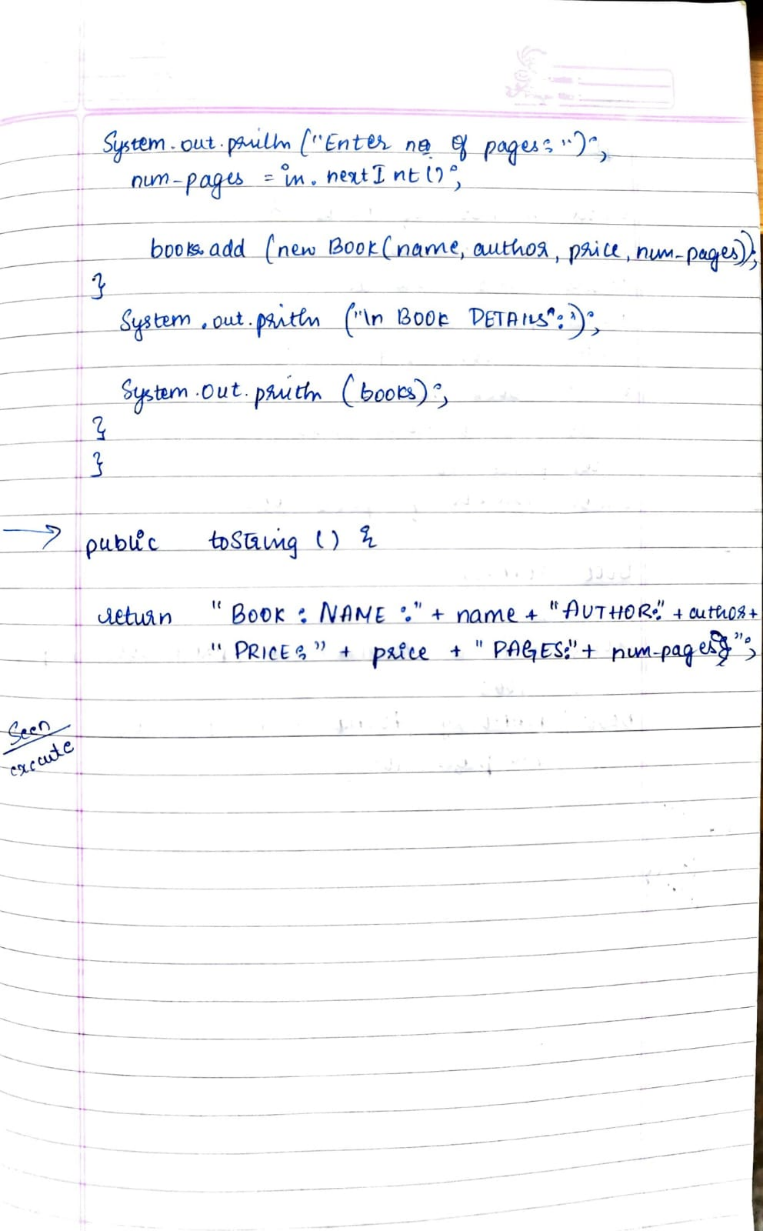 System.out.println ("Enter no of pages: ");
num-pages = in.nextInt();
books.add (new Book(name, author, price, num-pages));
}
System.out.println ("\n BOOK DETAILS":");
System.out.println (books);
}
}
→ public toString () {
return "BOOK : NAME :" + name + "AUTHOR:" + author +
"PRICE:" + price + "PAGES:" + num-pages}";
Seen
execute